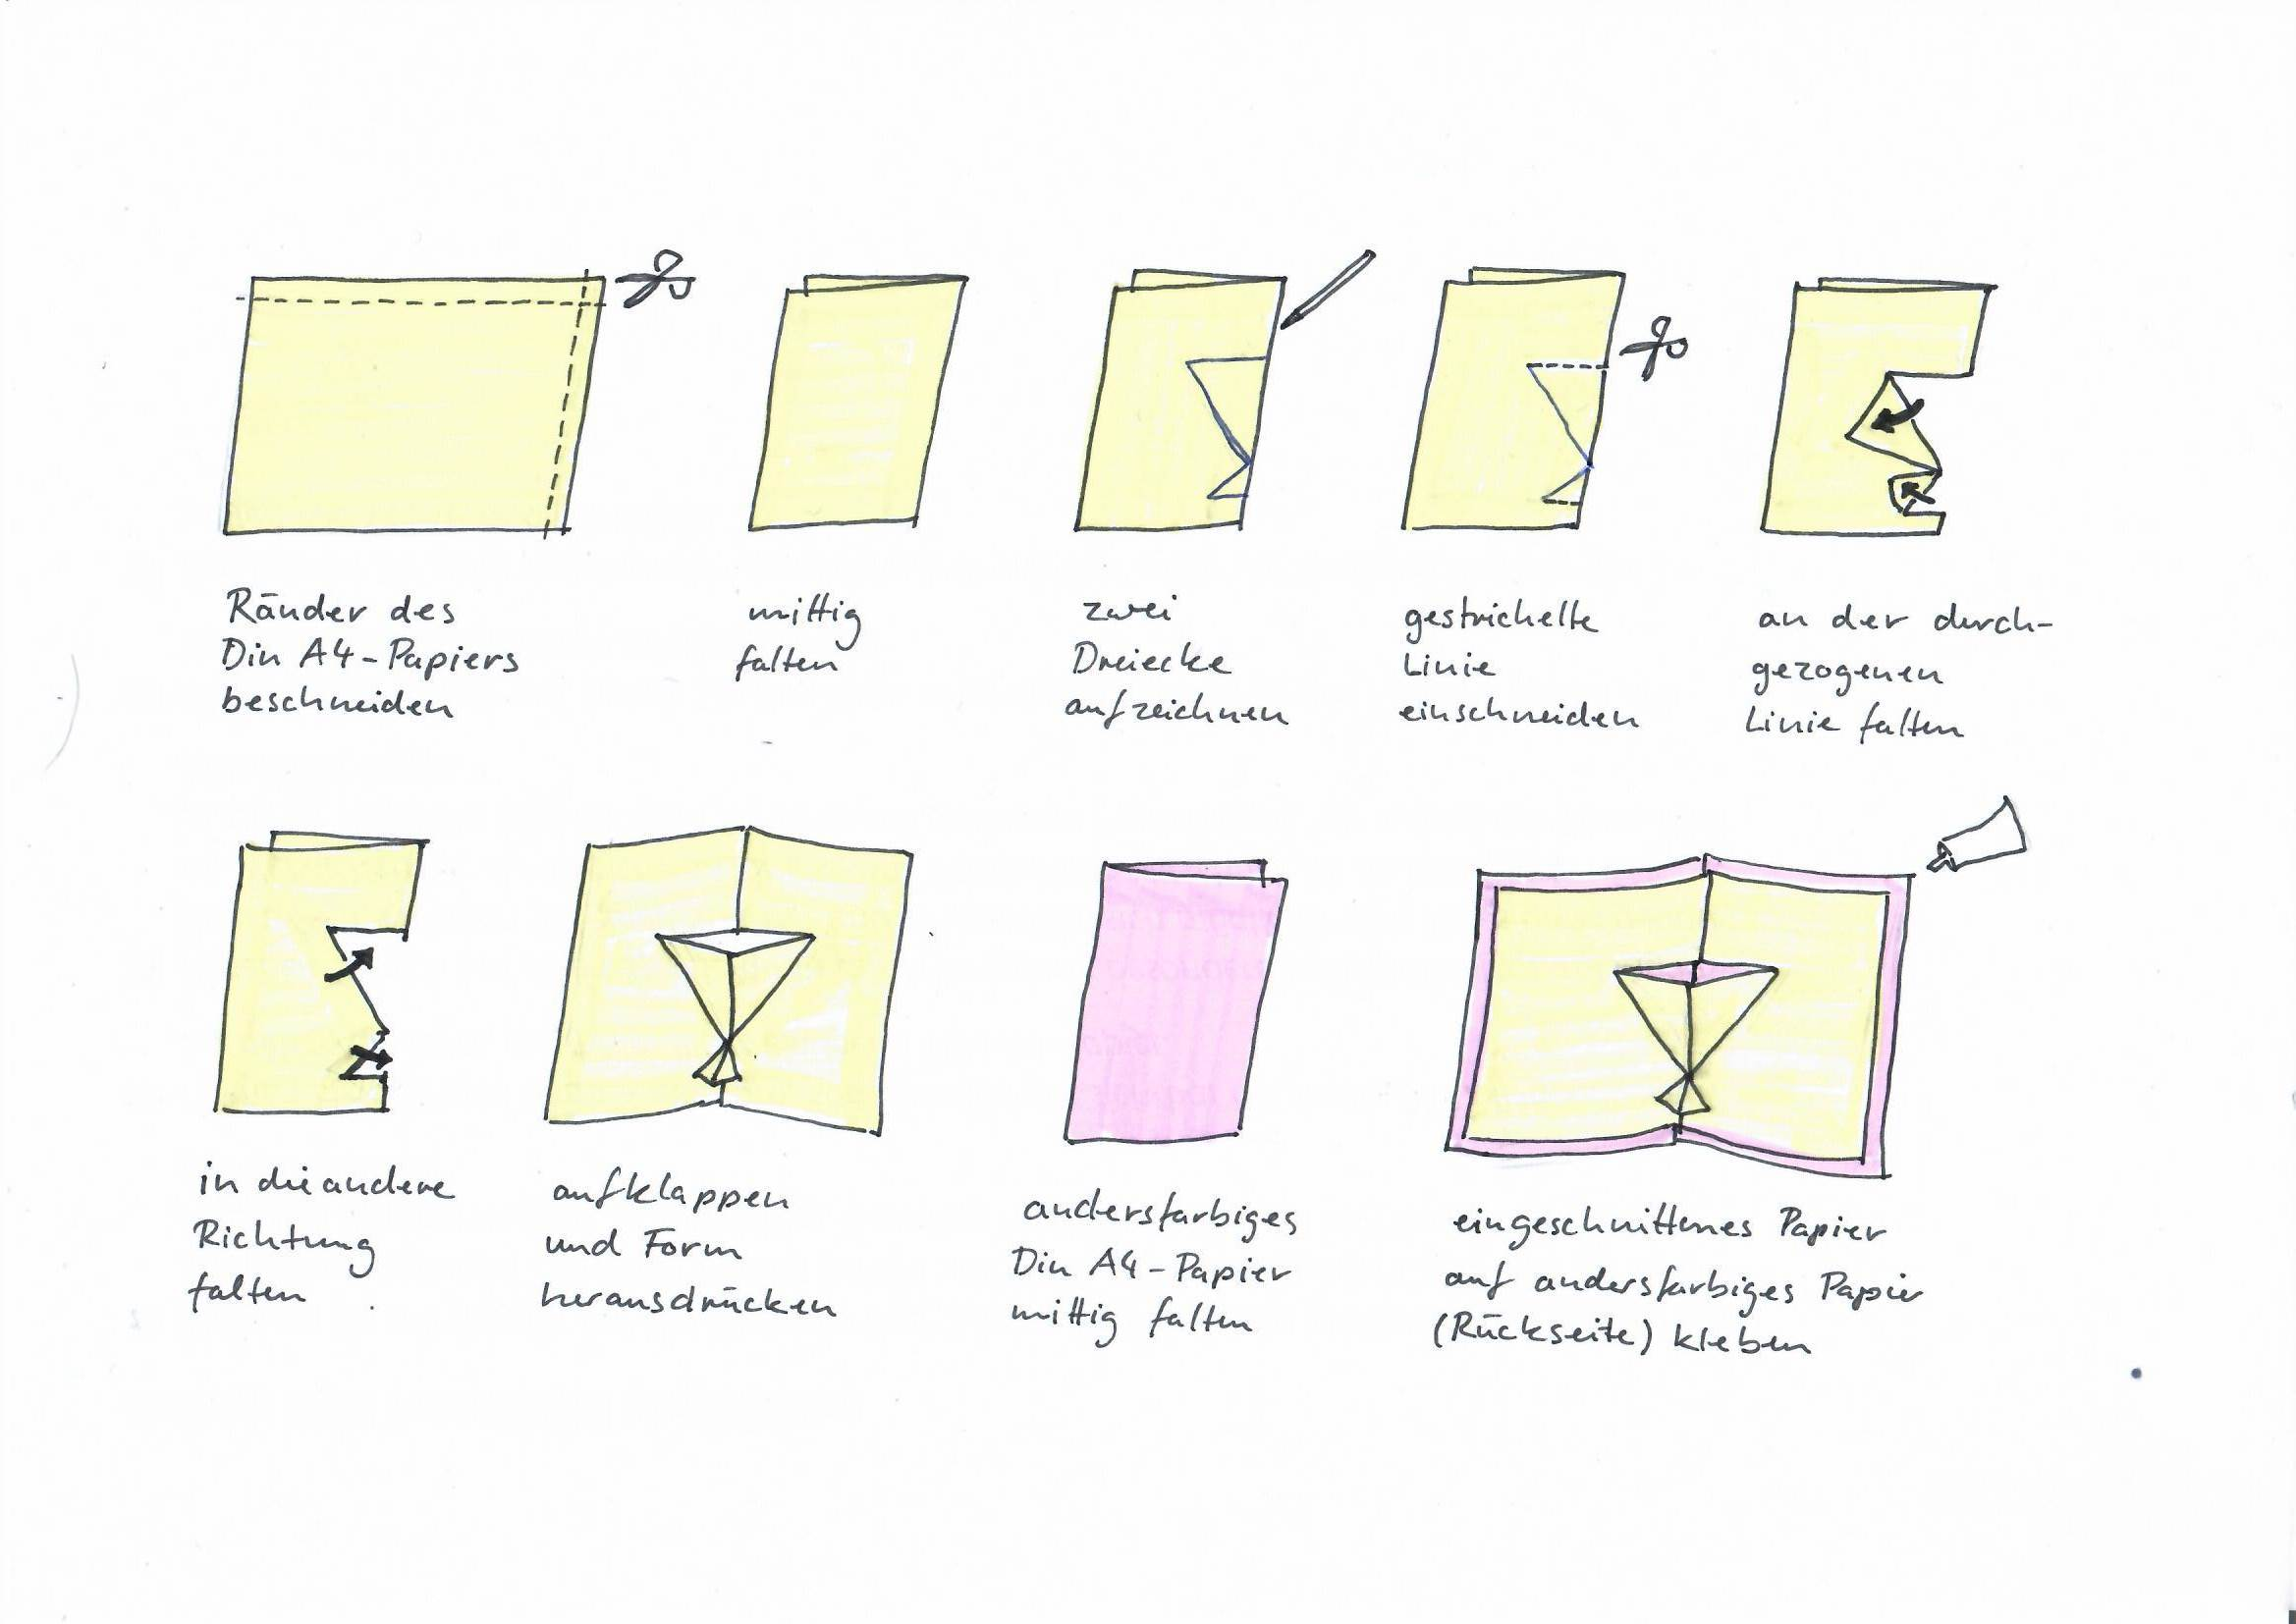 Ränder des
Din A4-Papiers
beschneiden
mittig
falten
zwei
Dreiecke
aufzeichnen
gestrichelte
Linie
einschneiden
an der durch-
gezogenen
Linie falten
in die andere
Richtung
falten
aufklappen
und Form
herausdrücken
andersfarbiges
Din A4-Papier
mittig falten
eingeschnittenes Papier
auf andersfarbiges Papier
(Rückseite) kleben